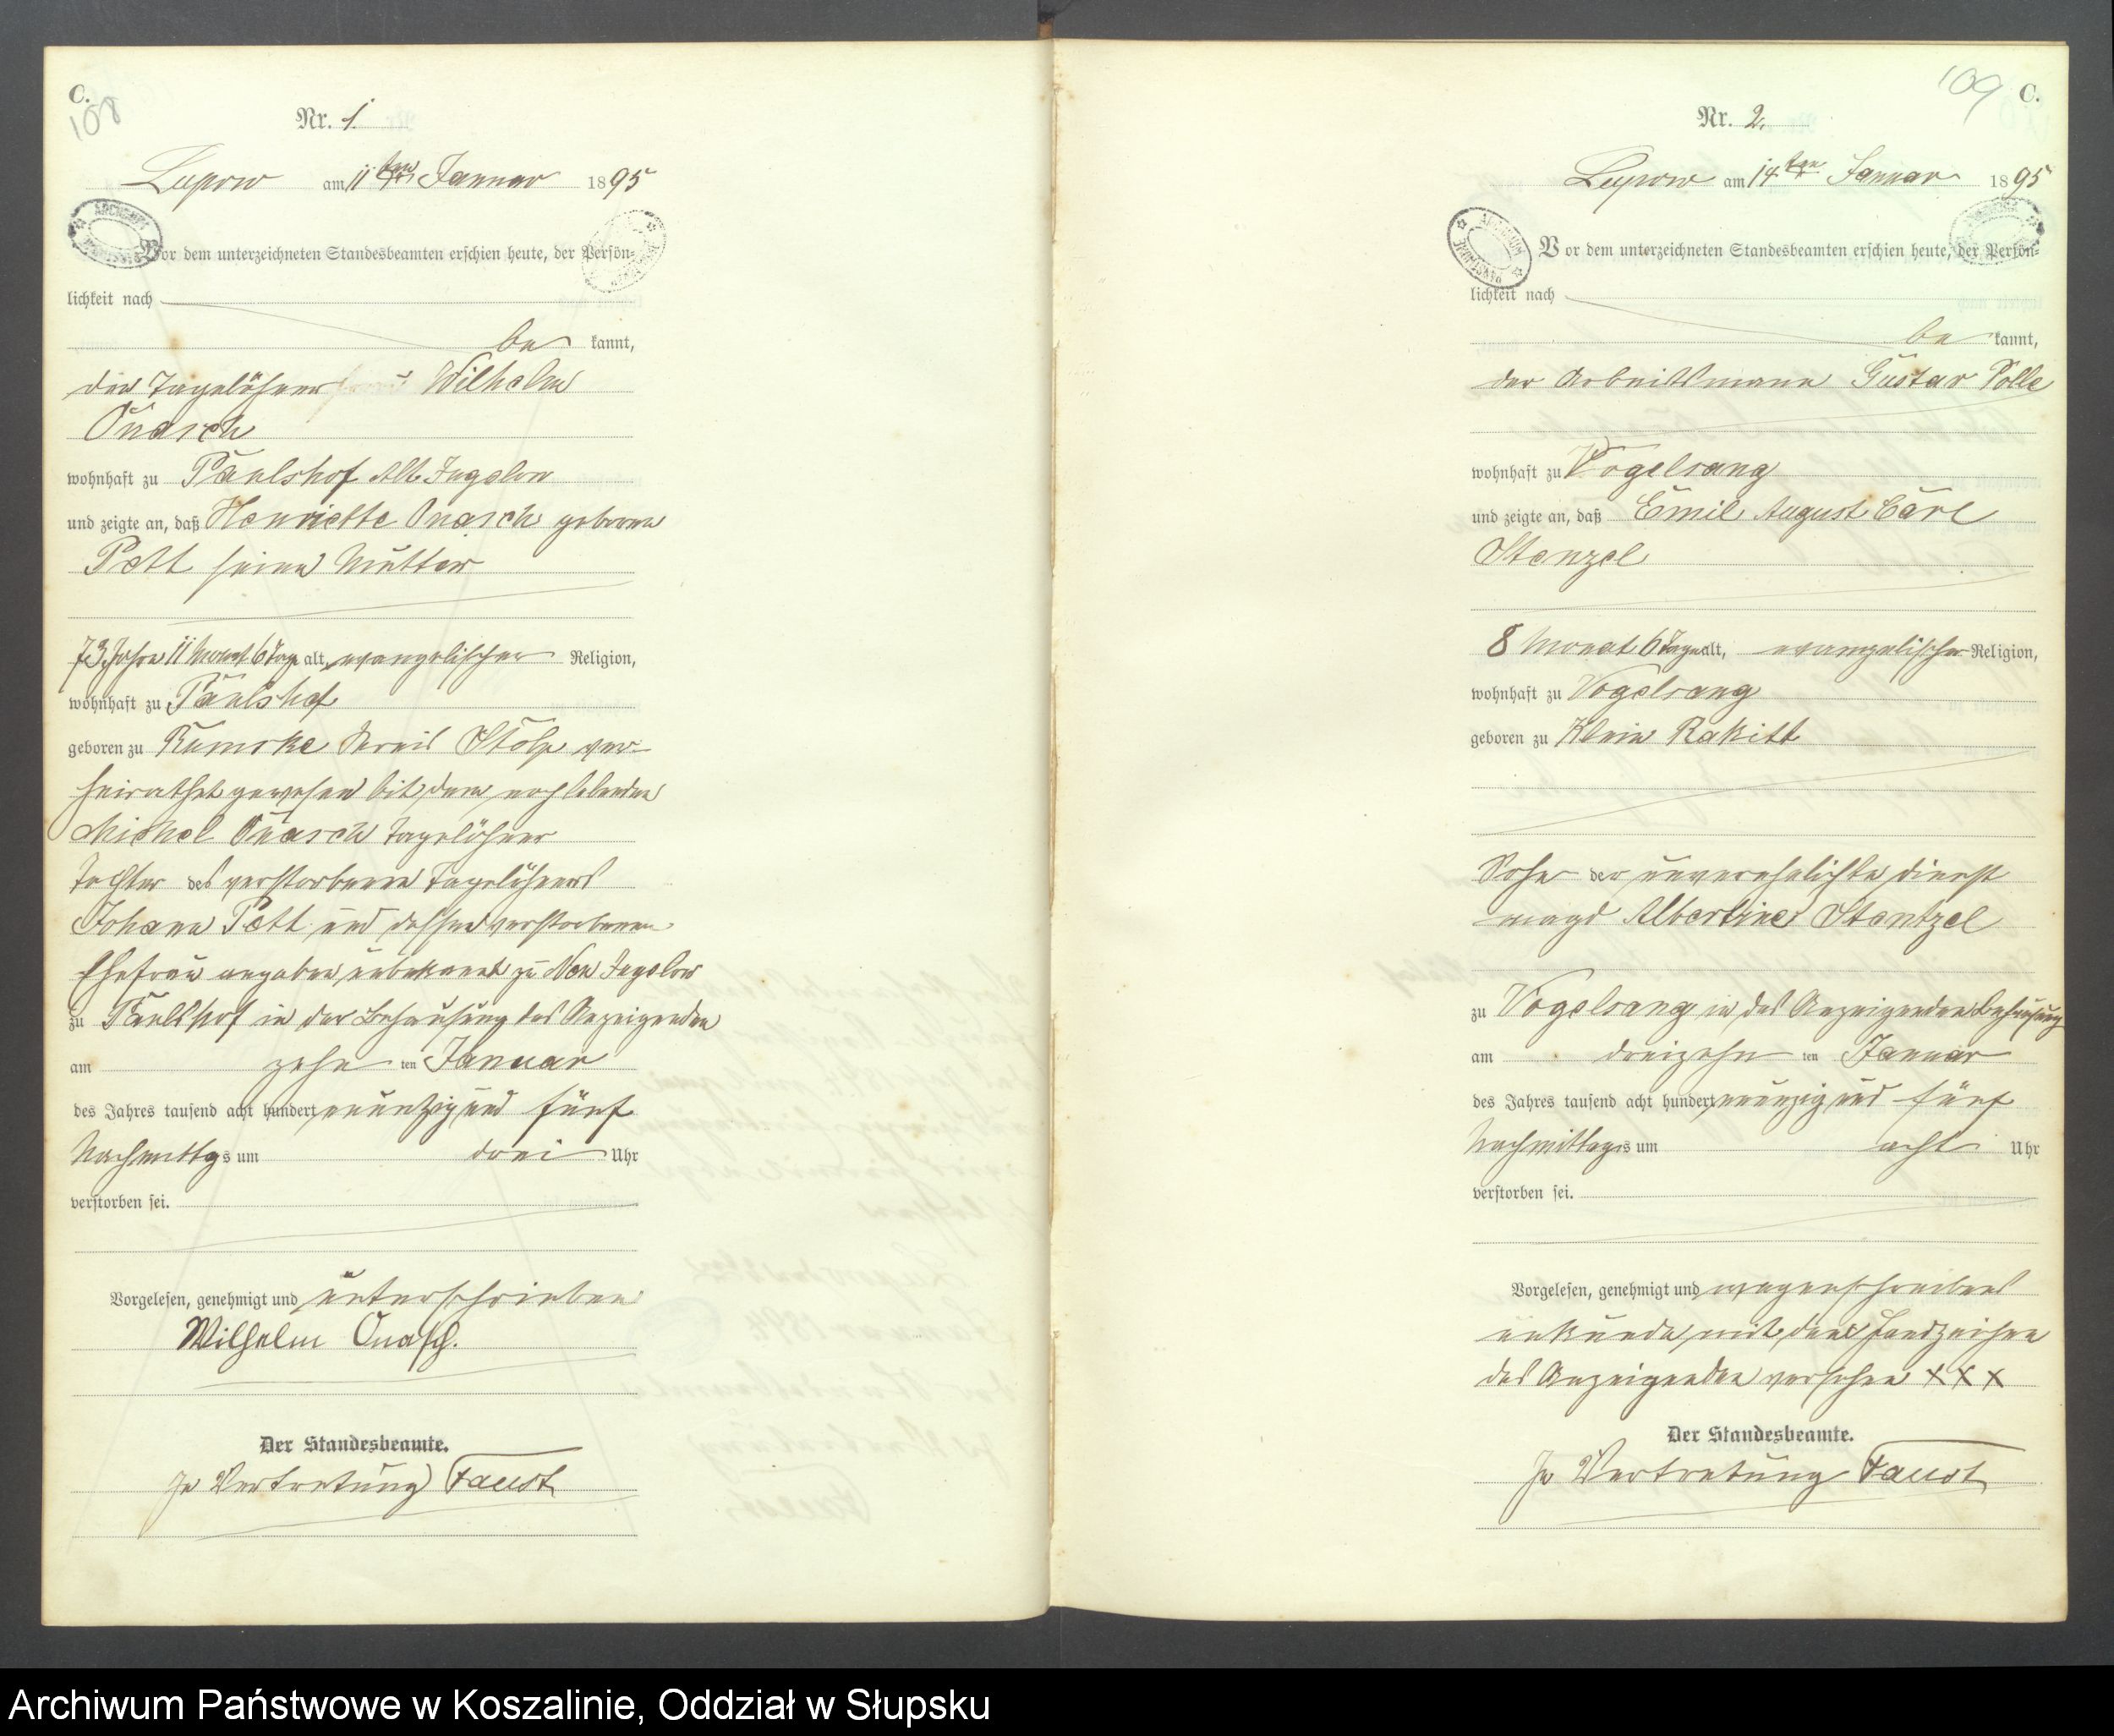 C.
108
Nr. 1.
Lupow am 11ten Januar 1895
Vor dem unterzeichneten Standesbeamten erschien heute, der Persön-
lichkeit nach
be kannt,
der Tagelöhner Wilhelm
Onasch
wohnhaft zu Paulshof Alt Jugelow
und zeigte an, daß Henriette Onasch geborene
Pett seine Mutter
73 Jahre 11 Monat 6 Tage alt, evangelischer Religion,
wohnhaft zu Paulshof
geboren zu Kumske Kreis Stolp ver-
heirathet gewesen mit dem noch lebenden
Michel Onasch Tagelöhner
Tochter des verstorbenen Tagelöhners
Johann Pett und dessen verstorbenen
Ehefrau angaben unbekannt zu Neu Jugelow
zu Paulshof in der Behausung des Anzeigenden
am zehn ten Januar
des Jahres tausend acht hundert neunzig und fünf
Nachmittgs um drei Uhr
verstorben sei.
Vorgelesen, genehmigt und unterschrieben
Wilhelm Onasch.
Der Standesbeamte.
In Vertretung Faust
109 C.
Nr. 2.
Lupow am 14ten Januar 1895
Vor dem unterzeichneten Standesbeamten erschien heute, der Persön-
lichkeit nach
be kannt,
der Arbeitsmann Gustav Polle
wohnhaft zu Vogelsang
und zeigte an, daß Emil August Carl
Stenzel
8 Monat 6 Tage alt, evangelischer Religion,
wohnhaft zu Vogelsang
geboren zu Klein Rakitt
Sohn der unverehelichte Dienst
magd Albertine Stentzel
zu Vogelsang in des Anzeigenden Behausung
am dreizehn ten Januar
des Jahres tausend acht hundert neunzig und fünf
Nachmittags um acht Uhr
verstorben sei.
Vorgelesen, genehmigt und wegen schreibens
unkunde mit dem Handzeichen
des Anzeigenden versehen XXX
Der Standesbeamte.
In Vertretung Faust
Archiwum Państwowe w Koszalinie, Oddział w Słupsku